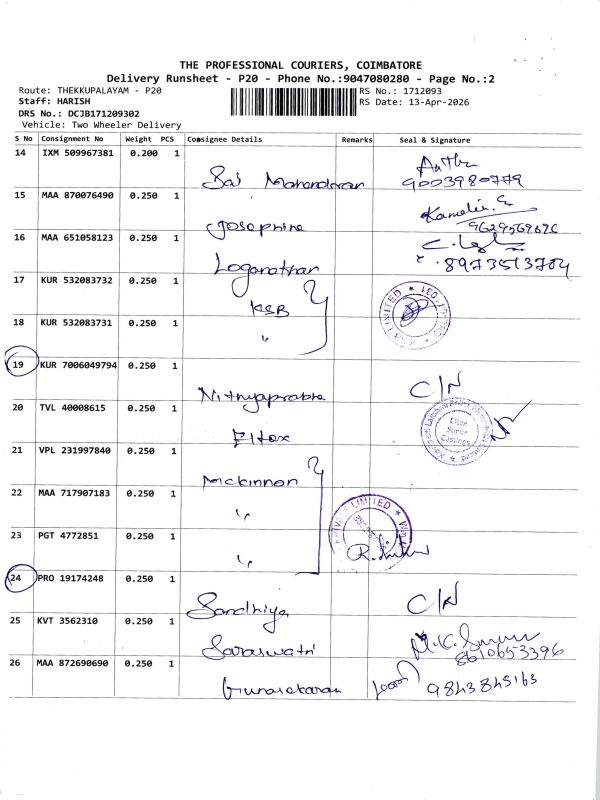 THE PROFESSIONAL COURIERS, COIMBATORE
Delivery Runsheet - P20 - Phone No.:9047080280 - Page No.:2
Route: THEKKUPALAYAM - P20
RS No.: 1712093
Staff: HARISH
RS Date: 13-Apr-2026
DRS No.: DCJB171209302
Vehicle: Two Wheeler Delivery
S No Consignment No Weight PCS Consignee Details Remarks Seal & Signature
14 IXM 509967381 0.200 1
Sai Manoharan 9003980779
15 MAA 870076490 0.250 1
Josephine 9629569676
16 MAA 651058123 0.250 1
Loganathan 8973513704
17 KUR 532083732 0.250 1
KSB
18 KUR 532083731 0.250 1
"
19 KUR 7006049794 0.250 1
Nithyaprabha C/N
20 TVL 40008615 0.250 1
Eltex
21 VPL 231997840 0.250 1
Mckinnon
22 MAA 717907183 0.250 1
"
23 PGT 4772851 0.250 1
"
24 PRO 19174248 0.250 1
Sandhiya C/N
25 KVT 3562310 0.250 1
Saraswathi 8610653396
26 MAA 872690690 0.250 1
Gunasekaran 9843845163